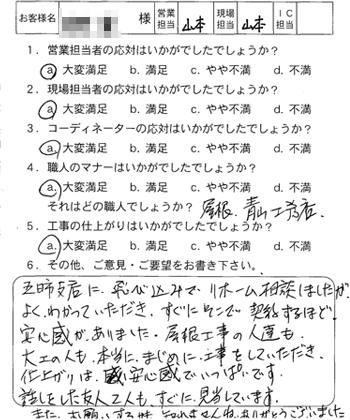 お客様名 様 営業担当 山本 現場担当 山本 IC担当
1. 営業担当者の応対はいかがでしたでしょうか?
a. 大変満足 b. 満足 c. やや不満 d. 不満
2. 現場担当者の応対はいかがでしたでしょうか?
a. 大変満足 b. 満足 c. やや不満 d. 不満
3. コーディネーターの応対はいかがでしたでしょうか?
a. 大変満足 b. 満足 c. やや不満 d. 不満
4. 職人のマナーはいかがでしたでしょうか?
a. 大変満足 b. 満足 c. やや不満 d. 不満
それはどの職人でしょうか? 屋根、青山工務店、
5. 工事の仕上がりはいかがでしたでしょうか?
a. 大変満足 b. 満足 c. やや不満 d. 不満
6. その他、ご意見・ご要望をお書き下さい。
支店に、飛び込みでリホーム相談しましたが
よくわかっていただき、すぐにそこで契約するほど、
安心感がありました。屋根工事の人達も、
大工の人も、本当に、まじめに、工事をしていただき、
仕上がりは、安心感でいっぱいです。
話をした友人2人も、すぐに、見当しています。
また、お願いする時 ありがとうございました